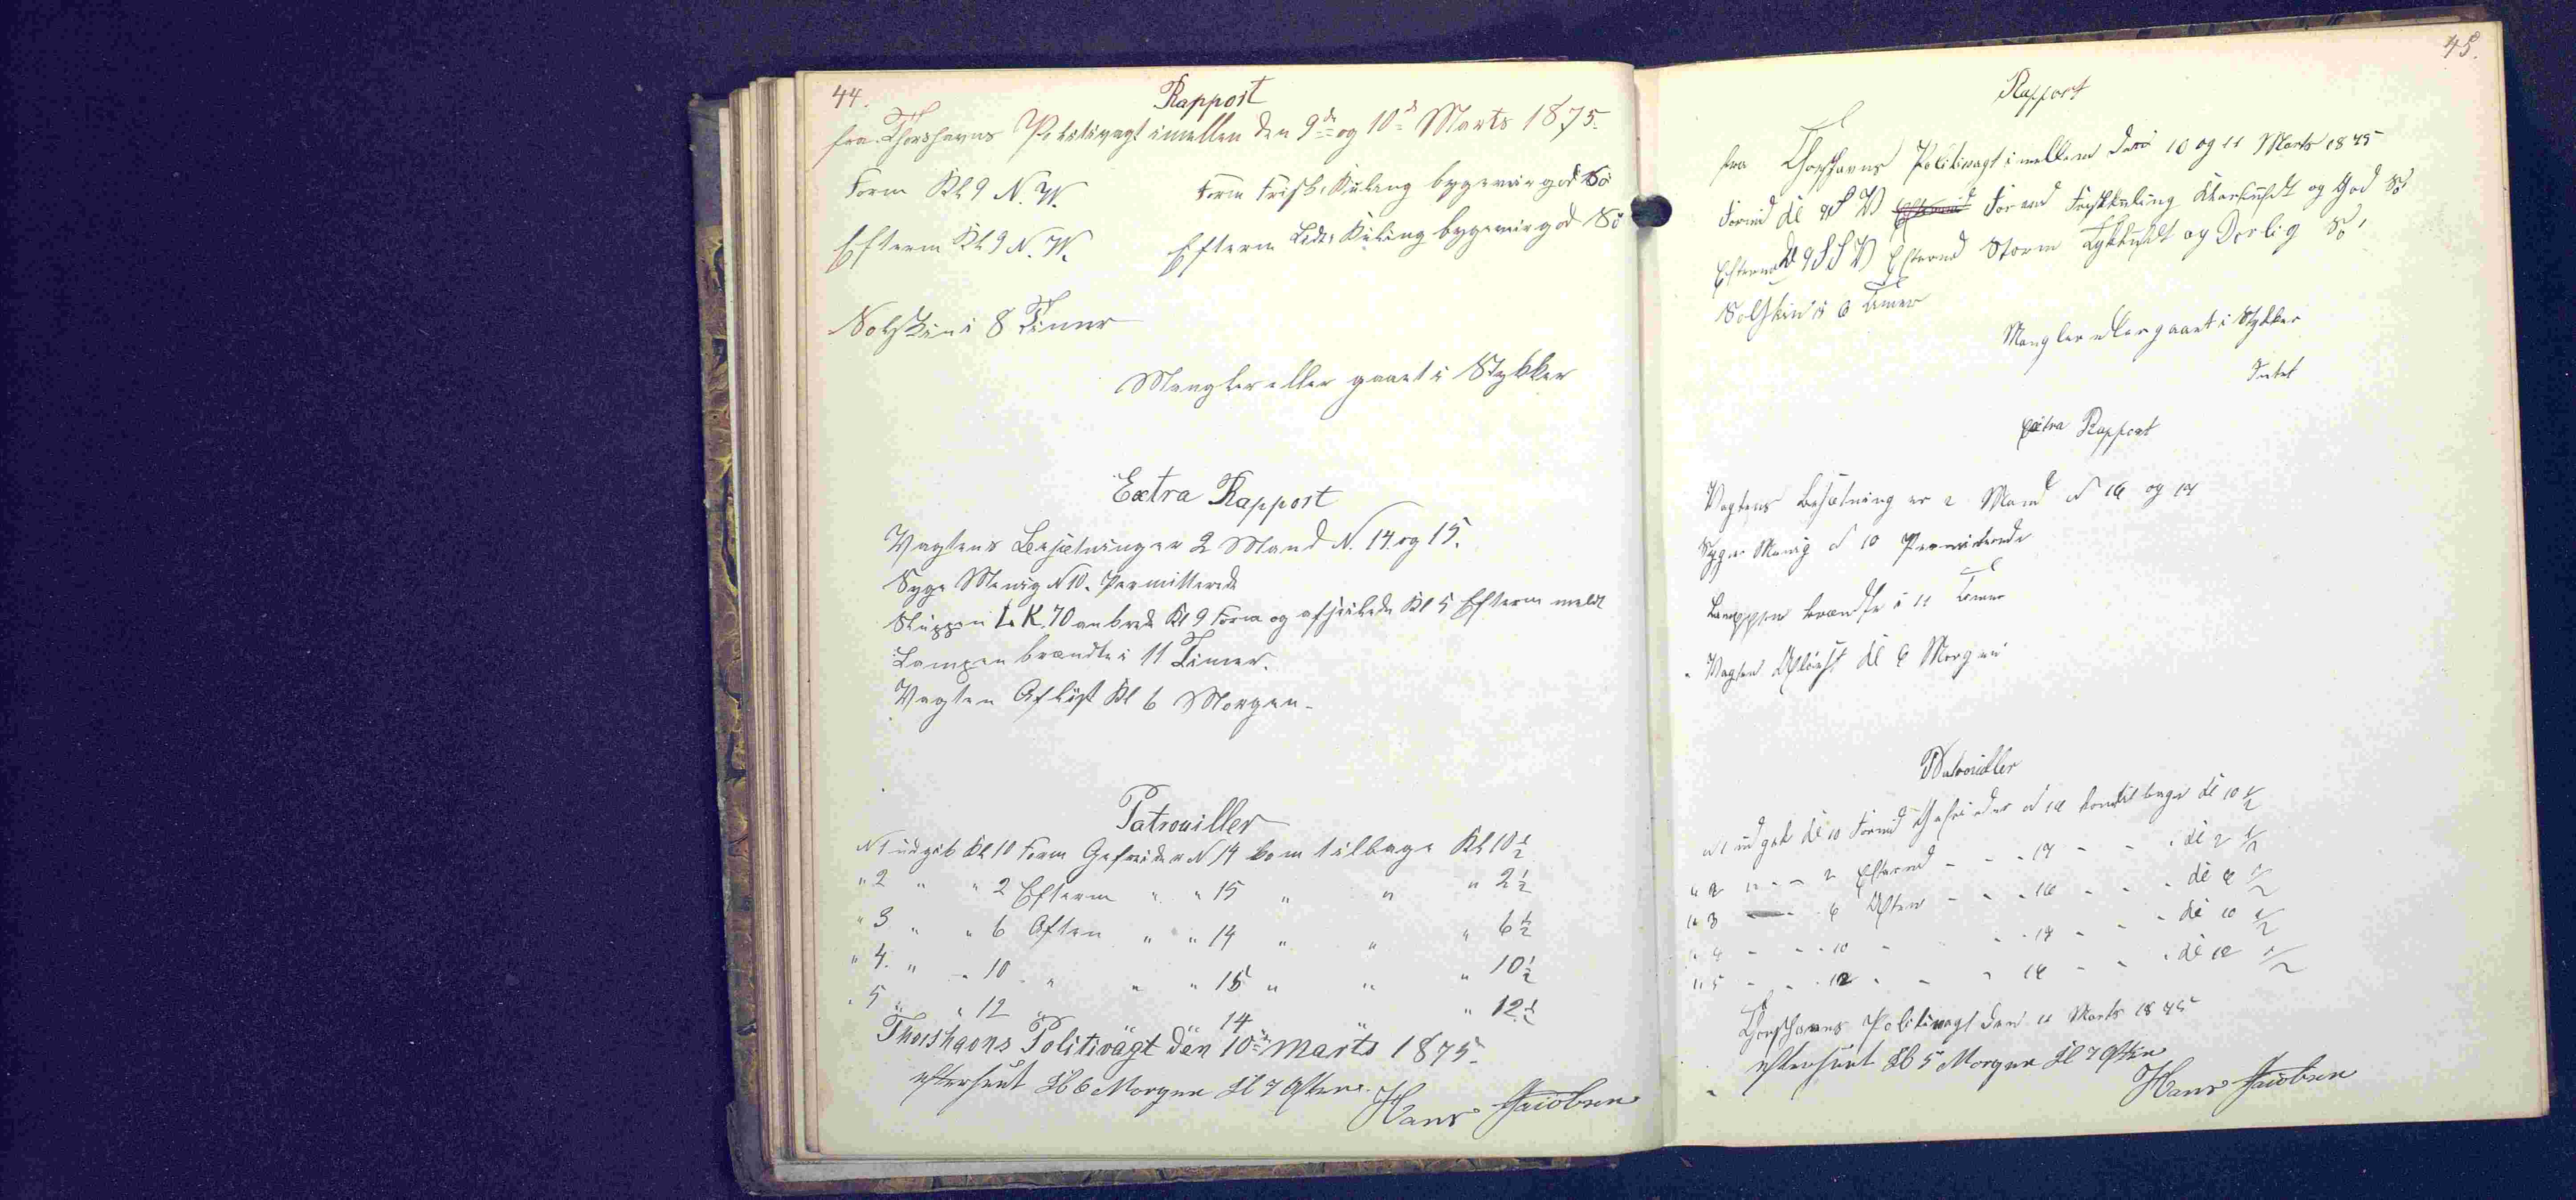 44.
Rapport
fra Thorshavns Politivagt imellem den 9de og 10de Marts 1875.
Form Kl 9 N. W. Form Frisk Kuling bygeveir god Sö
Efterm Kl 9 N. W. Efterm Lidt Kuling bygeveir god Sö
Solskin i 8 Timer
Mangler eller gaaet i Stykker
Extra Rapport
Vagtens Besætning er 2 Mand N. 14 og 15.
Syge Menig N 10. Permitterede
Sluppen L. K. 70 ankrede Kl 9 Form og afseilede Kl 5 Efterm meldt
Lampen brændte i 11 Timer.
Vagten Aflöst Kl 6 Morgen.
Patrouiller
N 1 udgik Kl 10 Form Gefreider N 14 kom tilbage Kl 10 1/2
" 2 " " 2 Efterm " " 15 " " " 2 1/2
" 3 " " 6 Aften " " 14 " " " 6 1/2
" 4. " " 10 " " " 15 " " " 10 1/2
" 5 " " 12 " 14 " " 12 1/2
Thorshavns Politivagt den 10de Marts 1875.
efterseet Kl 6 Morgen Kl 7 Aften.
Hans Jacobsen
45.
Rapport
fra Thorshavns Politivagt imellem den 10 og 11 Marts 1875
Formd Kl 9 S V Formd Frisk Kuling Klarluft og God Sö
Eftermd Kl 9 S S V Eftermd Storm Tykluft og Dorlig Sö
Solskin i 6 Timer
Mangler eller gaaet i Stykker
Intet
Extra Rapport
Vagtens Besætning er 2 Mand N 16 og 17
Syge Menig N 10 Permiterede
Lamppen brændte i 11 Timer
Vagten Aflöst Kl 6 Morgen
Patrouiller
N 1 udgik Kl 10 Formd Gefreider N 16 kom tilbage Kl 10 1/2
" 2 " - - 2 Eftermd - - - 17 - - - Kl 2 1/2
" 3 - 6 Aften - - - 16 - - - Kl 6 1/2
" 4 - - - 10 - - - 17 - - - Kl 10 1/2
" 5 - - - 12 - - - 16 - - - Kl 12 1/2
Thorshavns Politivagt den 11 Marts 1875
efterseet Kl 5 Morgen Kl 7 Aften
Hans Jacobsen